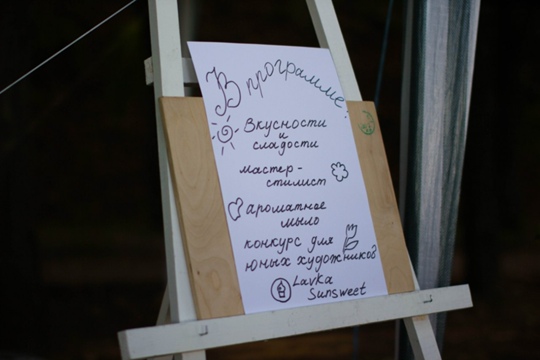 В программе:
Вкусности
и
сладости
мастер-
стилист
ароматное
мыло
конкурс для
юных художников
Lavka
Sunsweet